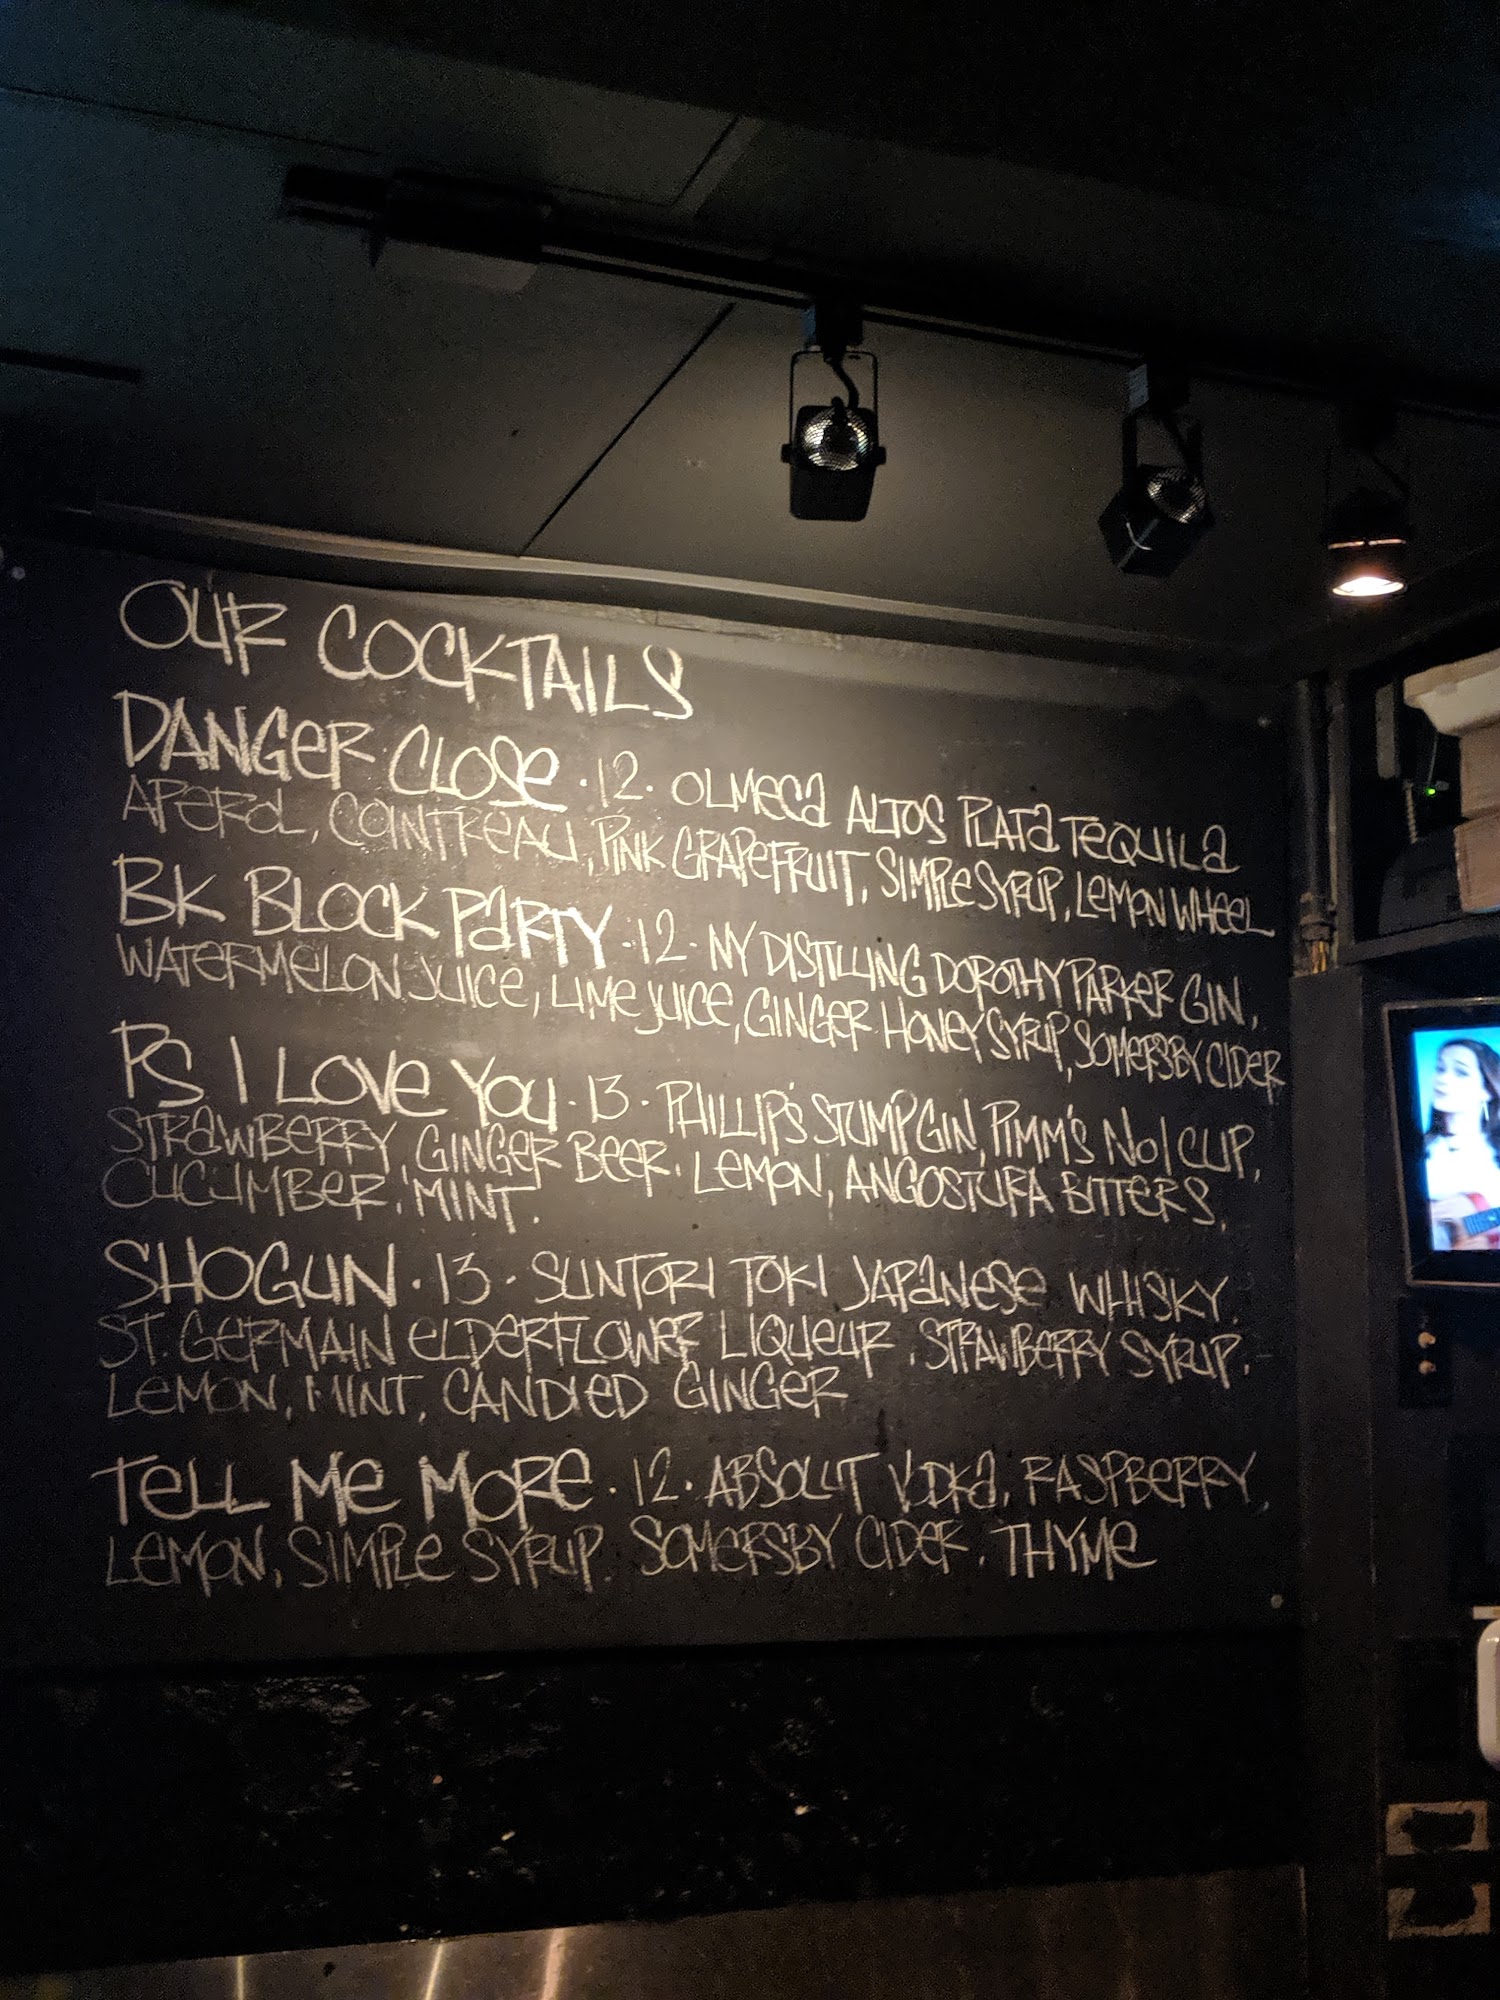 OUR COCKTAILS
DANGER CLOSE · 12 · OLMECA ALTOS PLATA TEQUILA
APEROL, COINTREAU, PINK GRAPEFRUIT, SIMPLE SYRUP, LEMON WHEEL
BK BLOCK PARTY · 12 · NY DISTILLING DOROTHY PARKER GIN,
WATERMELON JUICE, LIME JUICE, GINGER HONEY SYRUP, SOMERSBY CIDER
PS I LOVE YOU · 13 · PHILLIP'S STUMP GIN, PIMM'S NO 1 CUP,
STRAWBERRY, GINGER BEER, LEMON, ANGOSTURA BITTERS,
CUCUMBER, MINT.
SHOGUN · 13 · SUNTORI TOKI JAPANESE WHISKY.
ST. GERMAIN ELDERFLOWER LIQUEUR, STRAWBERRY SYRUP,
LEMON, MINT, CANDIED GINGER
TELL ME MORE · 12 · ABSOLUT VODKA, RASPBERRY,
LEMON, SIMPLE SYRUP, SOMERSBY CIDER, THYME